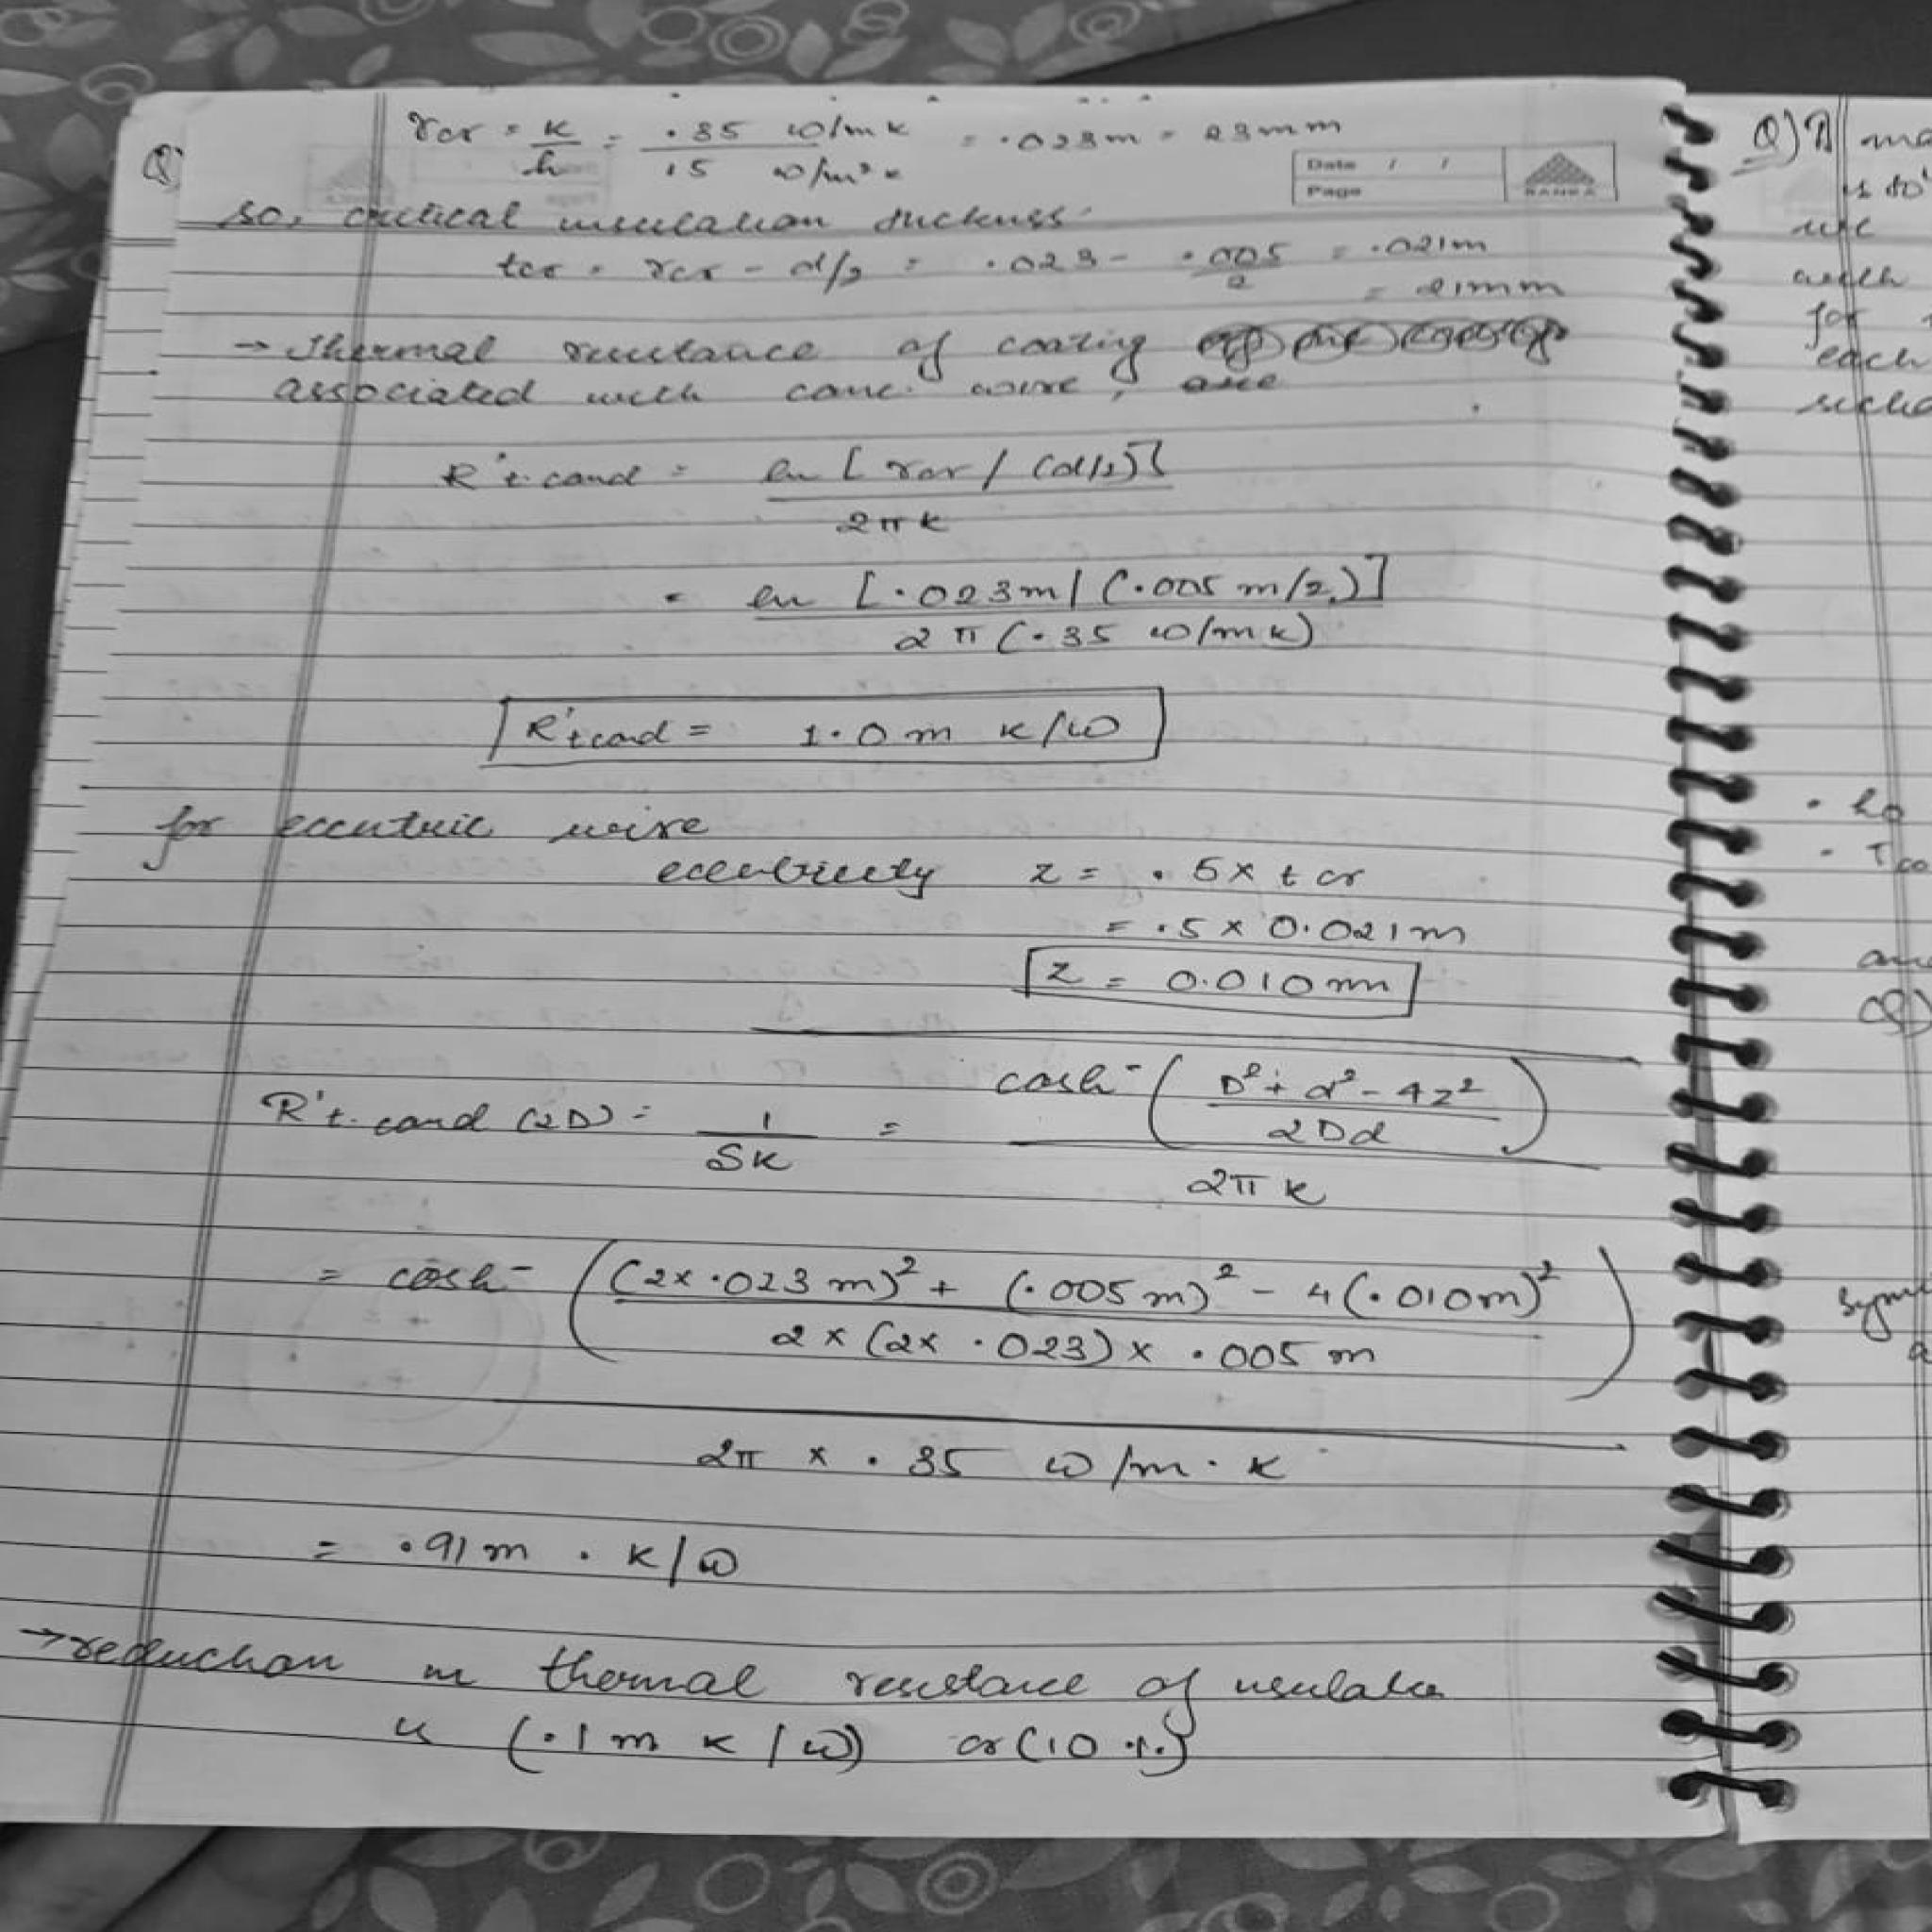 rcr = K/h = .35 W/mK / 15 W/m²K = .023m = 23mm
Q)
Date / /
Page
RANKA
so, critical insulation thickness
tcr = rcr - d/2 = .023 - .005/2 = .021m
= 21mm
→ Thermal resistance of coating
associated with conc. wire, are
R't.cond = ln [rcr / (d/2)] / 2πK
= ln [.023m / (.005 m/2)] / 2π (.35 W/mK)
R't cond = 1.0 m K/W
for eccentric wire
eccentricity z = .5 x tcr
= .5 x 0.021m
z = 0.010m
R't.cond (2D) = 1/SK = cosh⁻ (D² + d² - 4z² / 2Dd) / 2πK
= cosh⁻ ((2x.023 m)² + (.005m)² - 4(.010m)² / 2 x (2x .023) x .005 m)
2π x .35 W/m.K
= .91 m . K/W
→ reduction in thermal resistance of
is (.1 m K/W) or (10 %)
Q) A
for
each